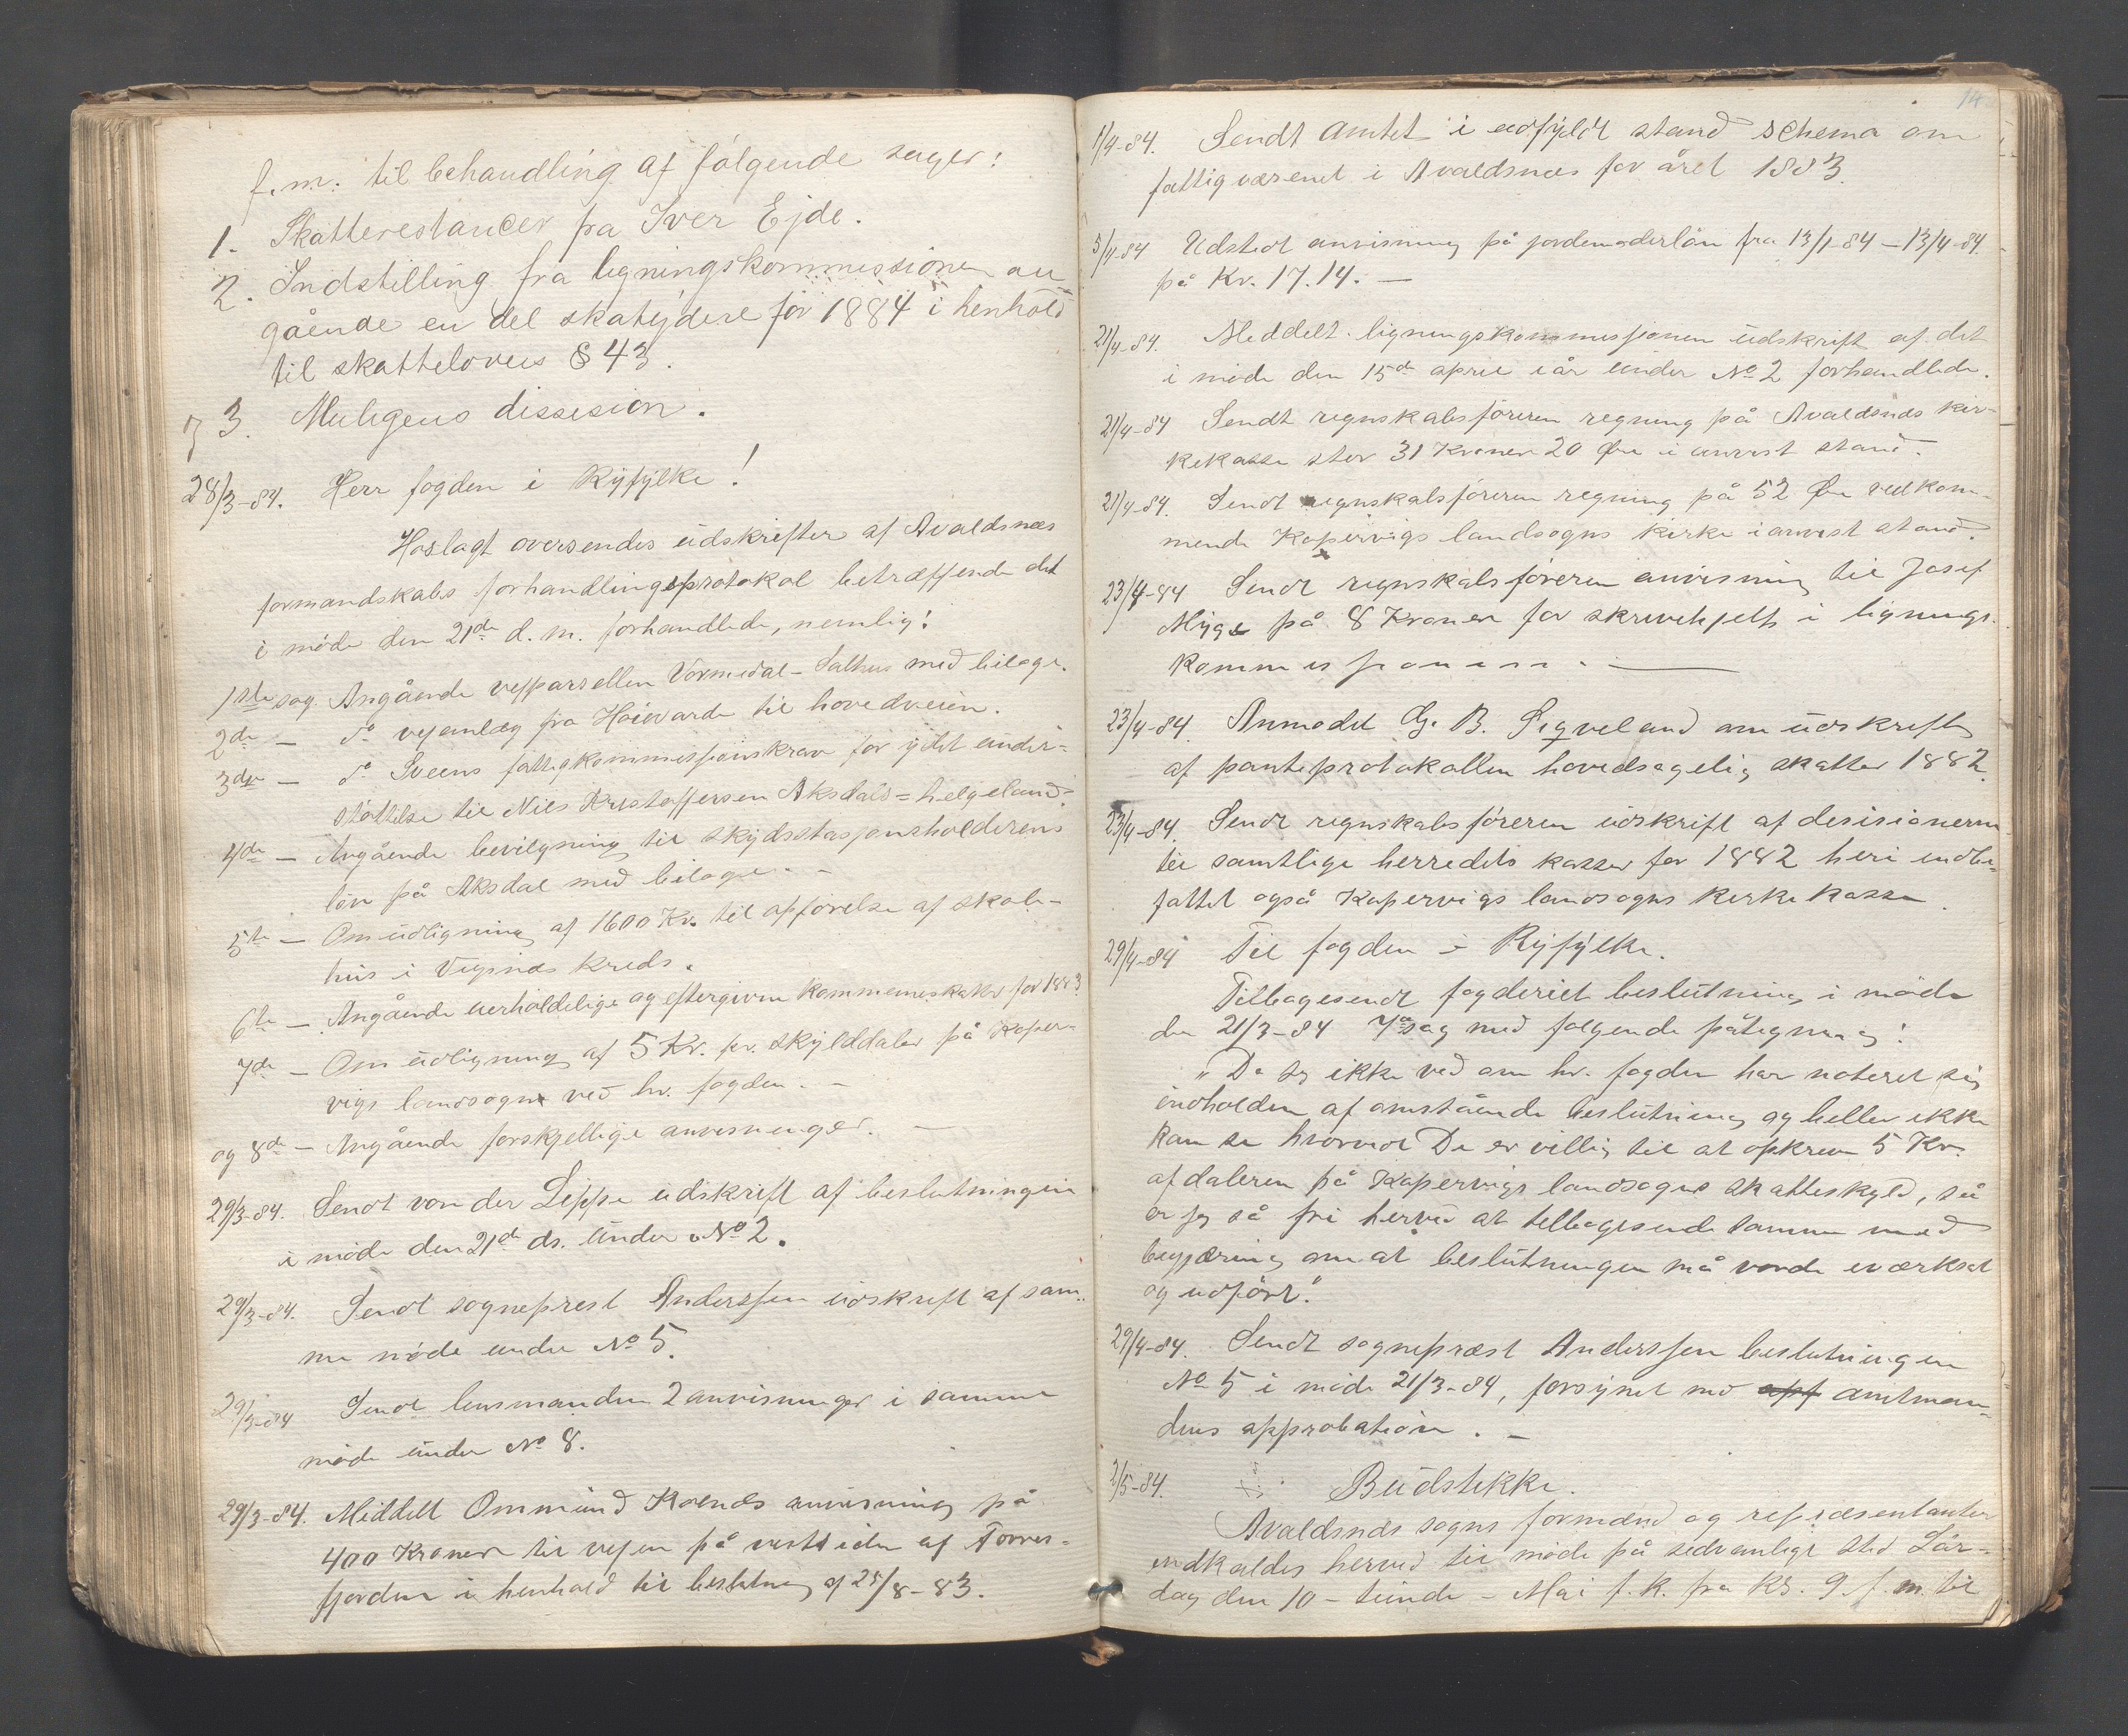 f.m. til behandling af følgende sager:
1. Skatterestancer fra Iver Ejde.
2. Indstilling fra ligningskommissionen an-
gående en del skatydere for 1884 i henhold
til skattelovens § 43.
3. Muligens dissision.
28/3-84. Herr fogden i Ryfylke!
Hoslagt oversendes udskrifter af Avaldsnæs
formandskabs forhandlingsprotokol betræffende det
i møde den 21de d.m. forhandlede, nemlig:
1ste sag. Angående vejparsellen Vormedal-Salhus med bilage.
2de — do vejanlæg fra Høievarde til hovedveien.
3die — do Sveens fattigkommissionskrav for ydet under-
støttelse til Niels Kristoffersen Aksdals-helgeland.
4de — Angående bevilgning til skydsstasjonsholderens
løn på Aksdal med bilage. -
5te — Om udligning af 1600 Kr. til opførelse af skole-
hus i Vigsnæs kreds.
6te — Angående uerholdelige og eftergivne kommuneskatter for 1883
7de — Om udligning af 5 Kr. pr. skylddaler på Koper-
vigs landsogn ved hr. fogden. -
og 8de — Angående forskjellige anvisninger. —
29/3-84. Sendt von der Lippe udskrift af beslutningen
i møde den 21de ds. under No 2.
29/3-84. Sendt sogneprest Anderssen udskrift af sam-
me møde under No 5.
29/3-84 Sendt lensmanden 2 anvisninger i samme
møde under No 8.
29/3-84. Meddelt Ommund Kolnes anvisning på
400 Kroner til vejen på vestsiden af Førres-
fjorden i henhold til beslutning af 25/8-83.
14
1/4-84. Sendt amtet i udfyldt stand schema om
fattigvæsenet i Avaldsnæs for året 1883.
5/4-84 Udstedt anvisning på jordemoderløn fra 13/1-84 — 13/4-84.
på Kr. 17.14. —
21/4-84. Meddelt ligningskommissjonen udskrift af det
i møde den 15de april i år under No 2 forhandlede.
21/4-84 Sendt regnskabsføreren regning på Avaldsnæs kir-
kekasse stor 31 Kroner 20 Øre i anvist stand.
21/4-84. Sendt regnskabsføreren regning på 52 Øre vedkom-
mende Kopervigs landsogns kirke i anvist stand.
23/4-84 Sendt regnskabsføreren anvisning til Josef
Myge på 8 Kroner for skrivehjelp i lignings-
kommissjonen. —
23/4-84. Anmodet G. B. Sigveland om udskrift
af panteprotokollen hovedsagelig skatter 1882.
23/4-84. Sendt regnskabsføreren udskrift af desisionerne
til samtlige herredets kasser for 1882 heri indbe-
fattet også Kopervigs landsogns kirkekasse.
29/4-84 Til fogden i Ryfylke.
Tilbagesendt fogderiet beslutning i møde
den 21/3-84 7de sag med følgende påtegning:
"Da jeg ikke ved om hr. fogden har noteret sig
indholden af omstående beslutning og heller ikke
kan se hvorvidt De er villig til at opkreve 5 Kr.
af daleren på Kopervigs landsogns skatteskyld, så
er jeg så fri herved at tilbagesende samme med
begjæring om at beslutningen må vorde iværksat
og udført."
29/4-84. Sendt sogneprest Anderssen beslutningen
No 5 i møde 21/3-84, forsynet med apf amtman-
dens approbation. —
2/5-84. Budstikke.
Avaldsnæs sogns formænd og repræsentanter
indkaldes herved til møde på sedvanlige sted Lør-
dag den 10-tiende - Mai f.k. fra Kl. 9 f.m. til